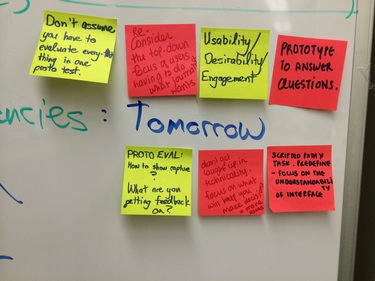 Don't assume
you have to
evaluate every-
thing in one
proto test.
Re-
Consider
the top-down
focus of users
having to do
what
Usability/
Desirability/
Engagement
PROTOTYPE
TO ANSWER
QUESTIONS.
encies: Tomorrow
PROTO EVAL:
How to show capture
?
What are you
getting feedback
on?
don't get
caught up in
technicality.
focus on what
will help you
make decisions
SCRIPTED PATH/
TASK. PREDEFINE
- FOCUS ON THE
UNDERSTANDABILI
TY
OF INTERFACE